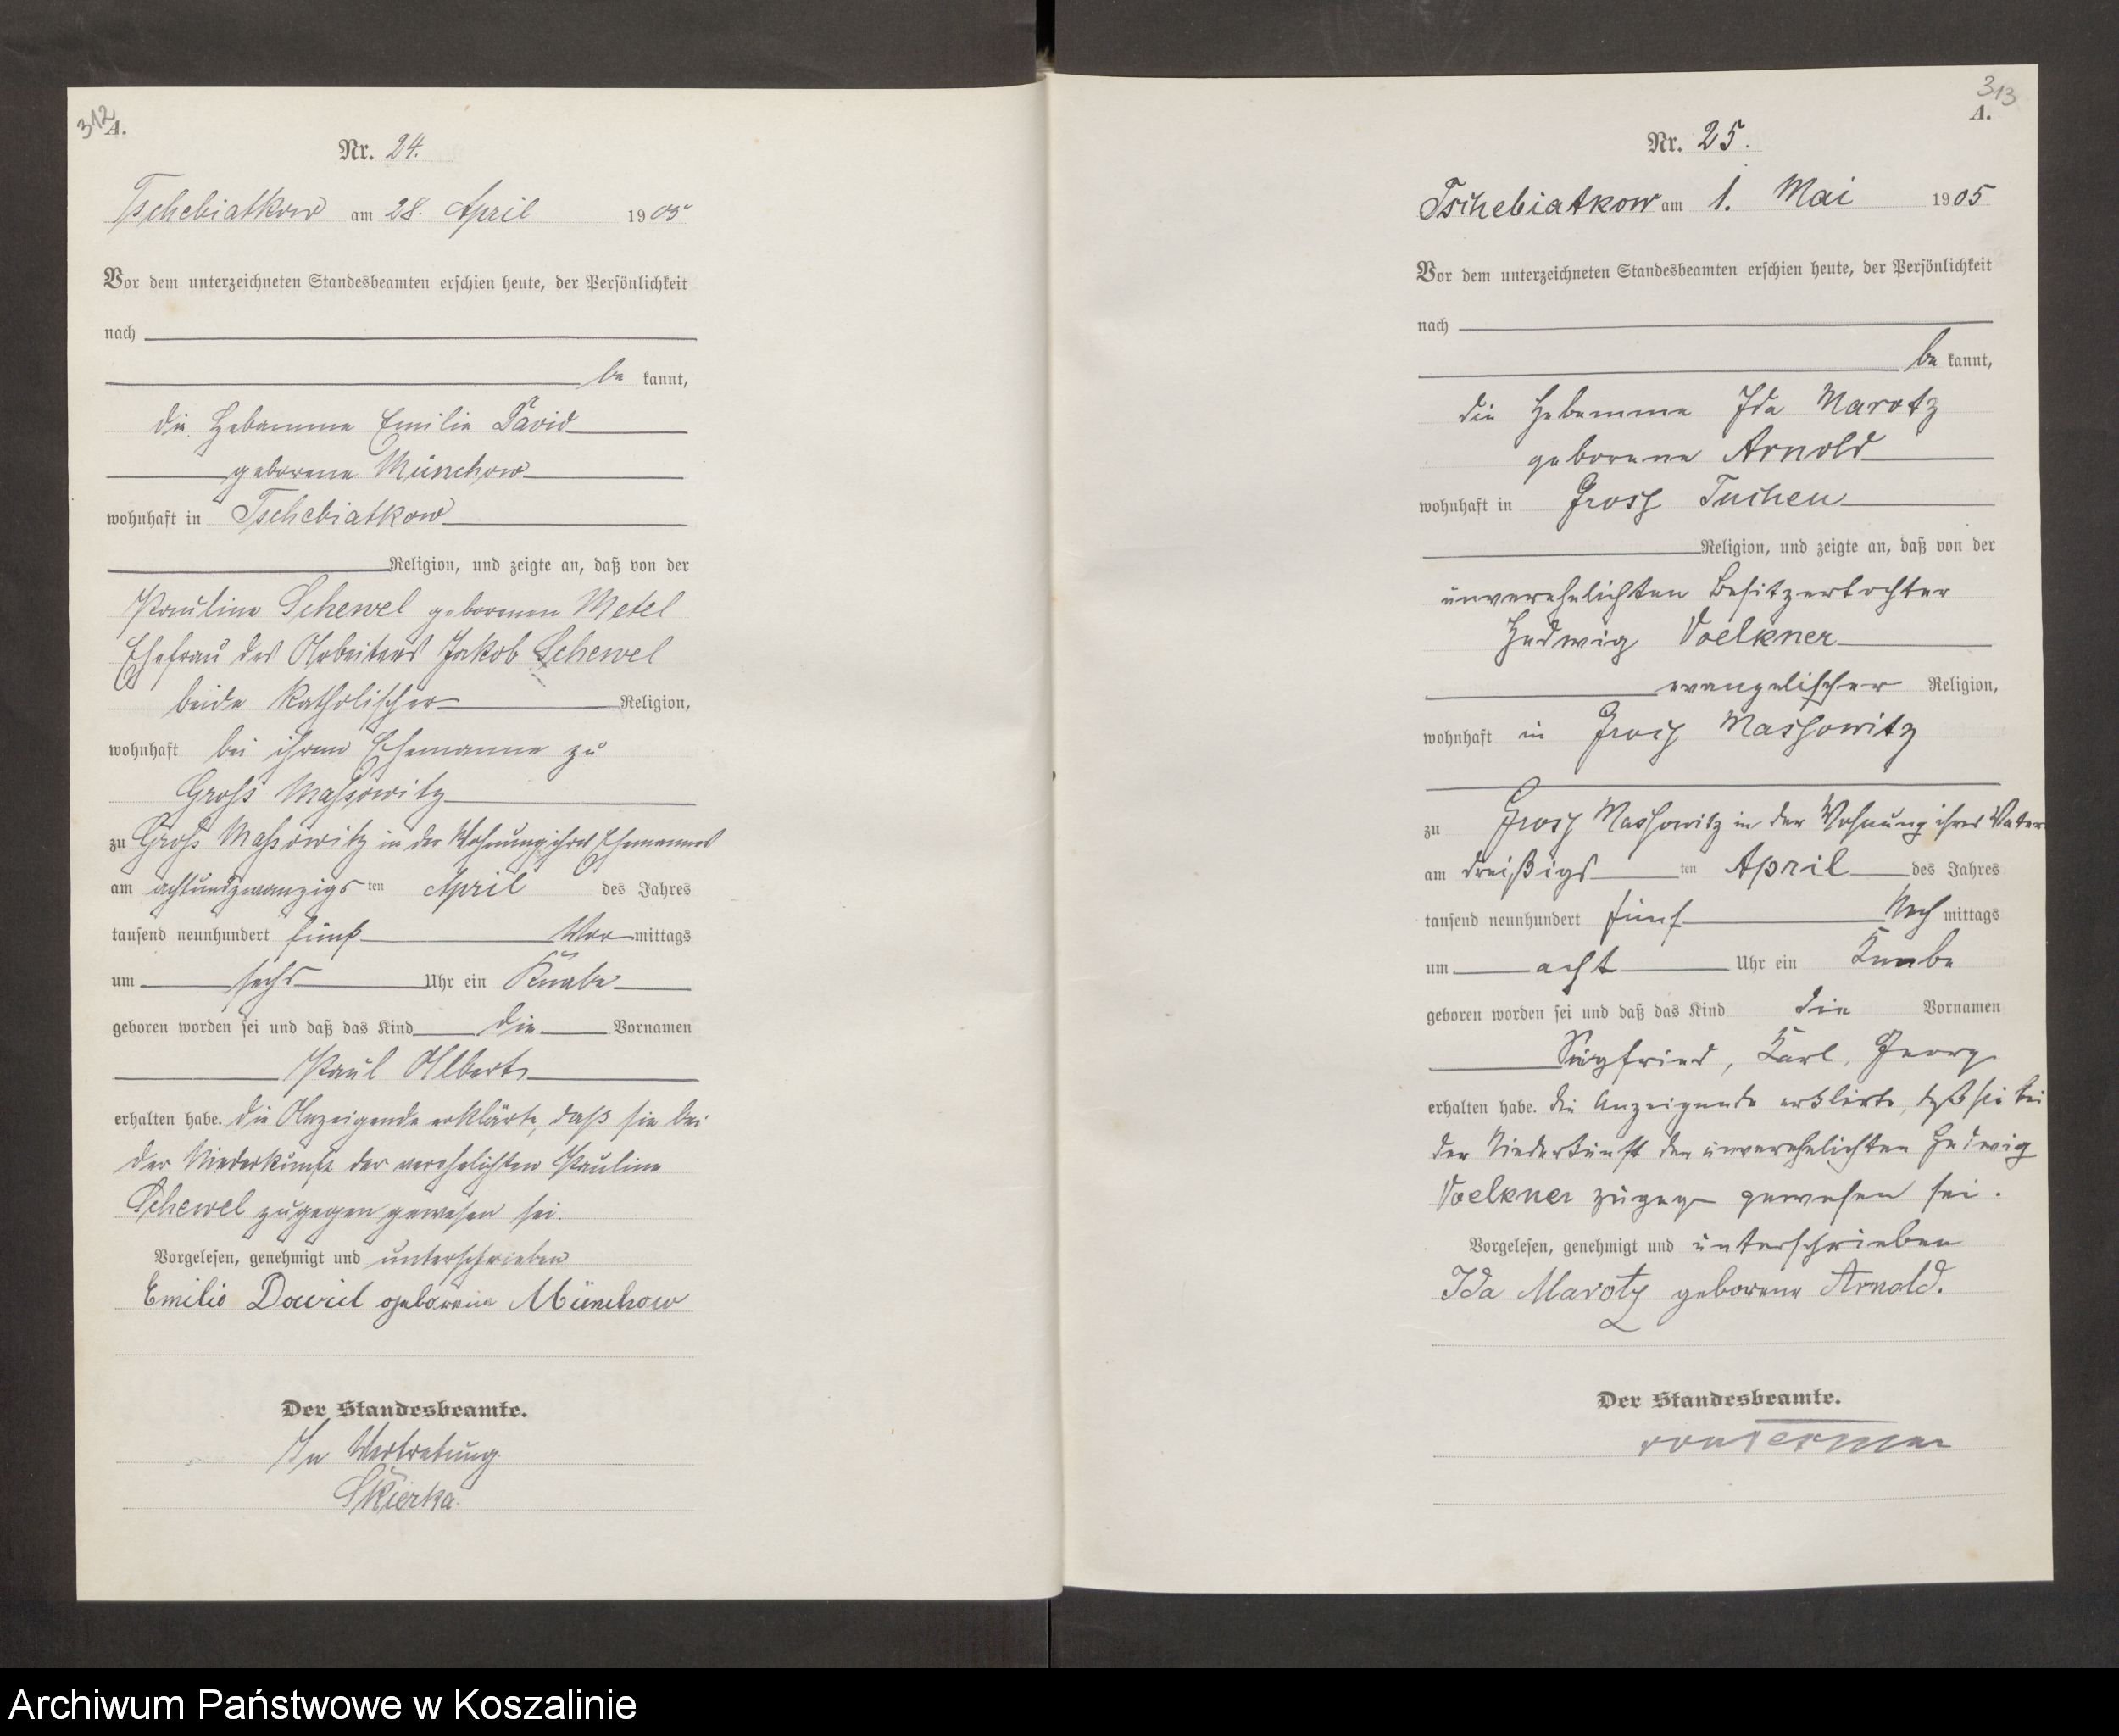 312
A.
Nr. 24.
Tschebiatkow am 28. April 1905
Vor dem unterzeichneten Standesbeamten erschien heute, der Persönlichkeit
nach
be kannt,
die Hebamme Emilie David
geborene Münchow
wohnhaft in Tschebiatkow
Religion, und zeigte an, daß von der
Pauline Schewel geborenen Metel
Ehefrau des Arbeiters Jakob Schewel
beide katholischer Religion,
wohnhaft bei ihrem Ehemanne zu
Gross Massowitz
zu Gross Massowitz in der Wohnung ihres Ehemannes
am achtundzwanzigs ten April des Jahres
tausend neunhundert fünf Vor mittags
um sechs Uhr ein Knabe
geboren worden sei und daß das Kind die Vornamen
Paul Albert
erhalten habe. Die Anzeigende erklärte, dass sie bei
der Niederkunft der verehelichten Pauline
Schewel zugegen gewesen sei.
Vorgelesen, genehmigt und unterschrieben
Emilie David geborene Münchow
Der Standesbeamte.
In Vertretung
Skierka.
313
A.
Nr. 25.
Tschebiatkow am 1. Mai 1905
Vor dem unterzeichneten Standesbeamten erschien heute, der Persönlichkeit
nach
be kannt,
die Hebamme Ida Marotz
geborene Arnold
wohnhaft in Gross Tuchen
Religion, und zeigte an, daß von der
unverehelichten Besitzertochter
Hedwig Voelkner
evangelischer Religion,
wohnhaft in Gross Massowitz
zu Gross Massowitz in der Wohnung ihres Vaters
am dreißigs ten April des Jahres
tausend neunhundert fünf Nach mittags
um acht Uhr ein Knabe
geboren worden sei und daß das Kind die Vornamen
Siegfried, Karl, Georg
erhalten habe. Die Anzeigende erklärte, daß sie bei
der Niederkunft der unverehelichten Hedwig
Voelkner zugegen gewesen sei.
Vorgelesen, genehmigt und unterschrieben
Ida Marotz geborene Arnold.
Der Standesbeamte.
Archiwum Państwowe w Koszalinie